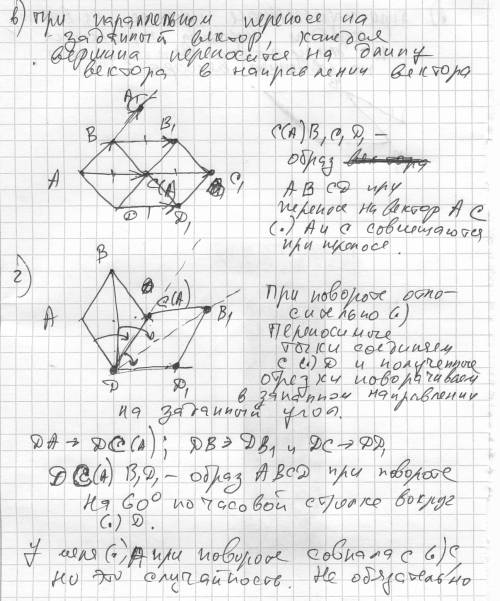 в) При параллельном переносе на
заданный вектор, каждая
вершина переносится на длину
вектора в направлении вектора
A1
B B1
A C(A) C1
D D1
C(A) B1 C1 D1 –
образ
ABCD при
переносе на вектор AC
(.) A и C совмещаются
при преносе.
г)
B
A C(A) B1
D D1
При повороте отно-
сительно (.)
Переносимые
точки соединяем
с (.) D и полученные
отрезки поворачиваем
в заданном направлении
на заданный угол.
DA → DC(A); DB → DB1 и DC → DD1
DC(A) B1D1 – образ ABCD при повороте
на 60° по часовой стрелке вокруг
(.) D.
У меня (.) A при повороте совпала с (.) C
но это случайность. Не обязательно